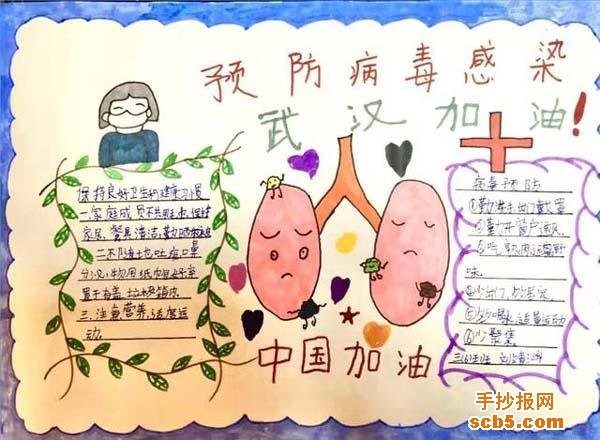 预防病毒感染
武汉加油!
保持良好卫生的健康习惯
一.家庭成员不共用毛巾,保持
家居、餐具清洁,勤晒衣被
二.不随地吐痰,口鼻
分泌物用纸巾包好弃
置于有盖垃圾箱内
三.注意营养,适度运
动.
病毒预防
①勤洗手出门戴口罩
②勤开窗户通风
味.
④少出门,少
⑤多喝水,适量运动
⑥少聚集
中国加油
手抄报网
scb5.com